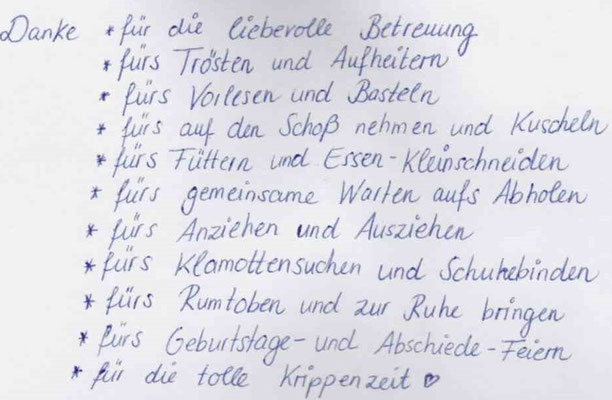 Danke * für die liebevolle Betreuung
* fürs Trösten und Aufheitern
* fürs Vorlesen und Basteln
* fürs auf den Schoß nehmen und Kuscheln
* fürs Füttern und Essen-Kleinschneiden
* fürs gemeinsame Warten aufs Abholen
* fürs Anziehen und Ausziehen
* fürs Klamottensuchen und Schuhebinden
* fürs Rumtoben und zur Ruhe bringen
* fürs Geburtstage- und Abschiede-Feiern
* für die tolle Krippenzeit ♡